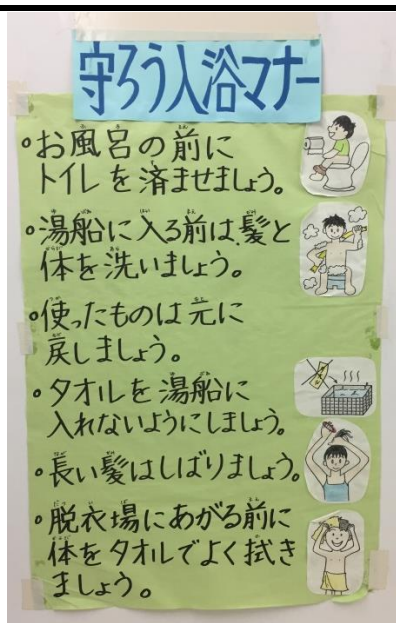 守ろう入浴マナー
・お風呂の前に
トイレを済ませましょう。
・湯船に入る前は、髪と
体を洗いましょう。
・使ったものは元に
戻しましょう。
・タオルを湯船に
入れないようにしましょう。
・長い髪はしばりましょう。
・脱衣場にあがる前に
体をタオルでよく拭き
ましょう。